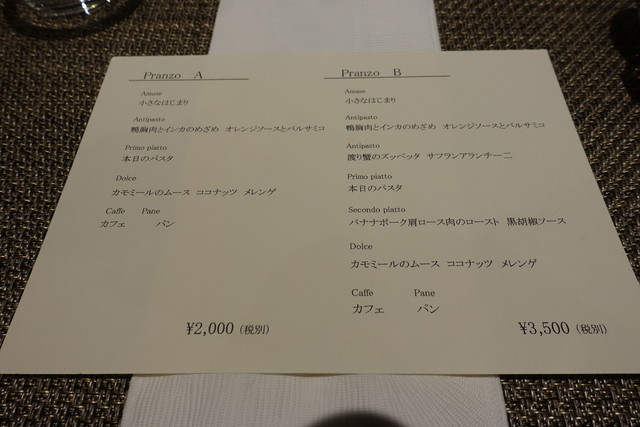 Pranzo A
Amuse
小さなはじまり
Antipasto
鴨胸肉とインカのめざめ オレンジソースとバルサミコ
Primo piatto
本日のパスタ
Dolce
カモミールのムース ココナッツ メレンゲ
Caffe Pane
カフェ パン
¥2,000 (税別)
Pranzo B
Amuse
小さなはじまり
Antipasto
鴨胸肉とインカのめざめ オレンジソースとバルサミコ
Antipasto
渡り蟹のズッペッタ サフランアランチーニ
Primo piatto
本日のパスタ
Secondo piatto
バナナポーク肩ロース肉のロースト 黒胡椒ソース
Dolce
カモミールのムース ココナッツ メレンゲ
Caffe Pane
カフェ パン
¥3,500 (税別)